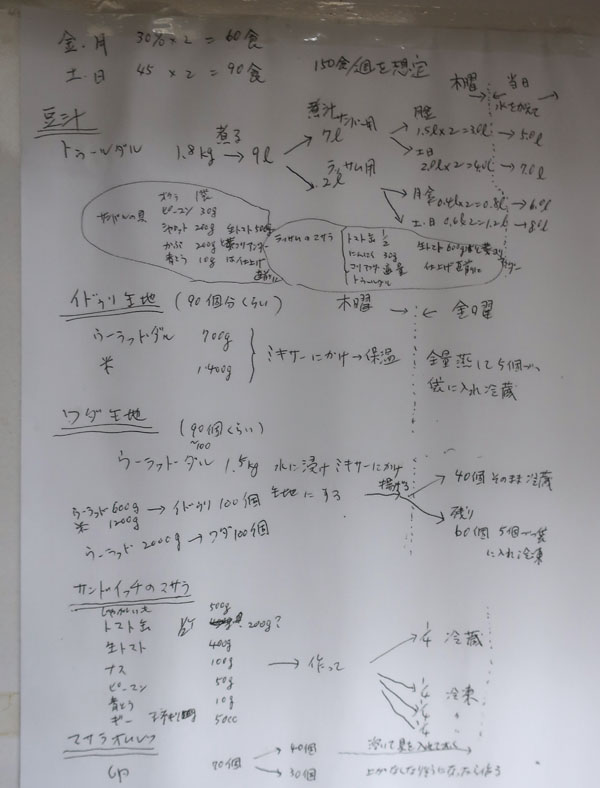 金.月 30% × 2 = 60食
土.日 45 × 2 = 90食
150食/週を想定
木曜 当日
水をかえて
豆汁
トゥールダル 1.8kg → 9ℓ
煮る
煮汁 サンバー用 7ℓ
ラッサム用 2ℓ
月金 1.5ℓ×2=3.0ℓ → 5.0ℓ
土日 2.0ℓ×2=4.0ℓ → 7.0ℓ
月金 0.4ℓ×2=0.8ℓ → 6.0ℓ
土.日 0.6ℓ×2=1.2ℓ → 8.0ℓ
サンバルの具
オクラ 1袋
ピーマン 30g
200g 生トマト500g
かぶ 200g
青とう 10g は仕上げ
直前に
ラッサムのマサラ
トマト缶 1/2
にんにく 30g
適量
生トマト600g
仕上げ直前に
イドゥリ生地 (90個分くらい)
木曜 → ← 金曜
ウーラッドダル 700g
米 1400g
ミキサーにかけ → 保温
全量蒸して5個づつ
袋に入れ冷蔵
ワダ生地 (90個くらい)
~100
ウーラッド・ダル 1.5kg 水に浸けミキサーにかけ
生地にする
揚げる
40個そのまま冷蔵
残り
60個 5個づつ袋
に入れ冷凍
ウーラッド600g → イドゥリ100個
米 1200g
ウーラッド 2000g → ワダ100個
サンドイッチのマサラ
じゃがいも 500g
トマト缶 200g?
生トマト 400g
ナス 100g
ピーマン 50g
青とう 10g
ギー 50cc
→ 作って
1/4 冷蔵
1/4 冷凍
1/4 〃
1/4 〃
マサラオムレツ
70個
40個 溶いて具を入れておく
30個